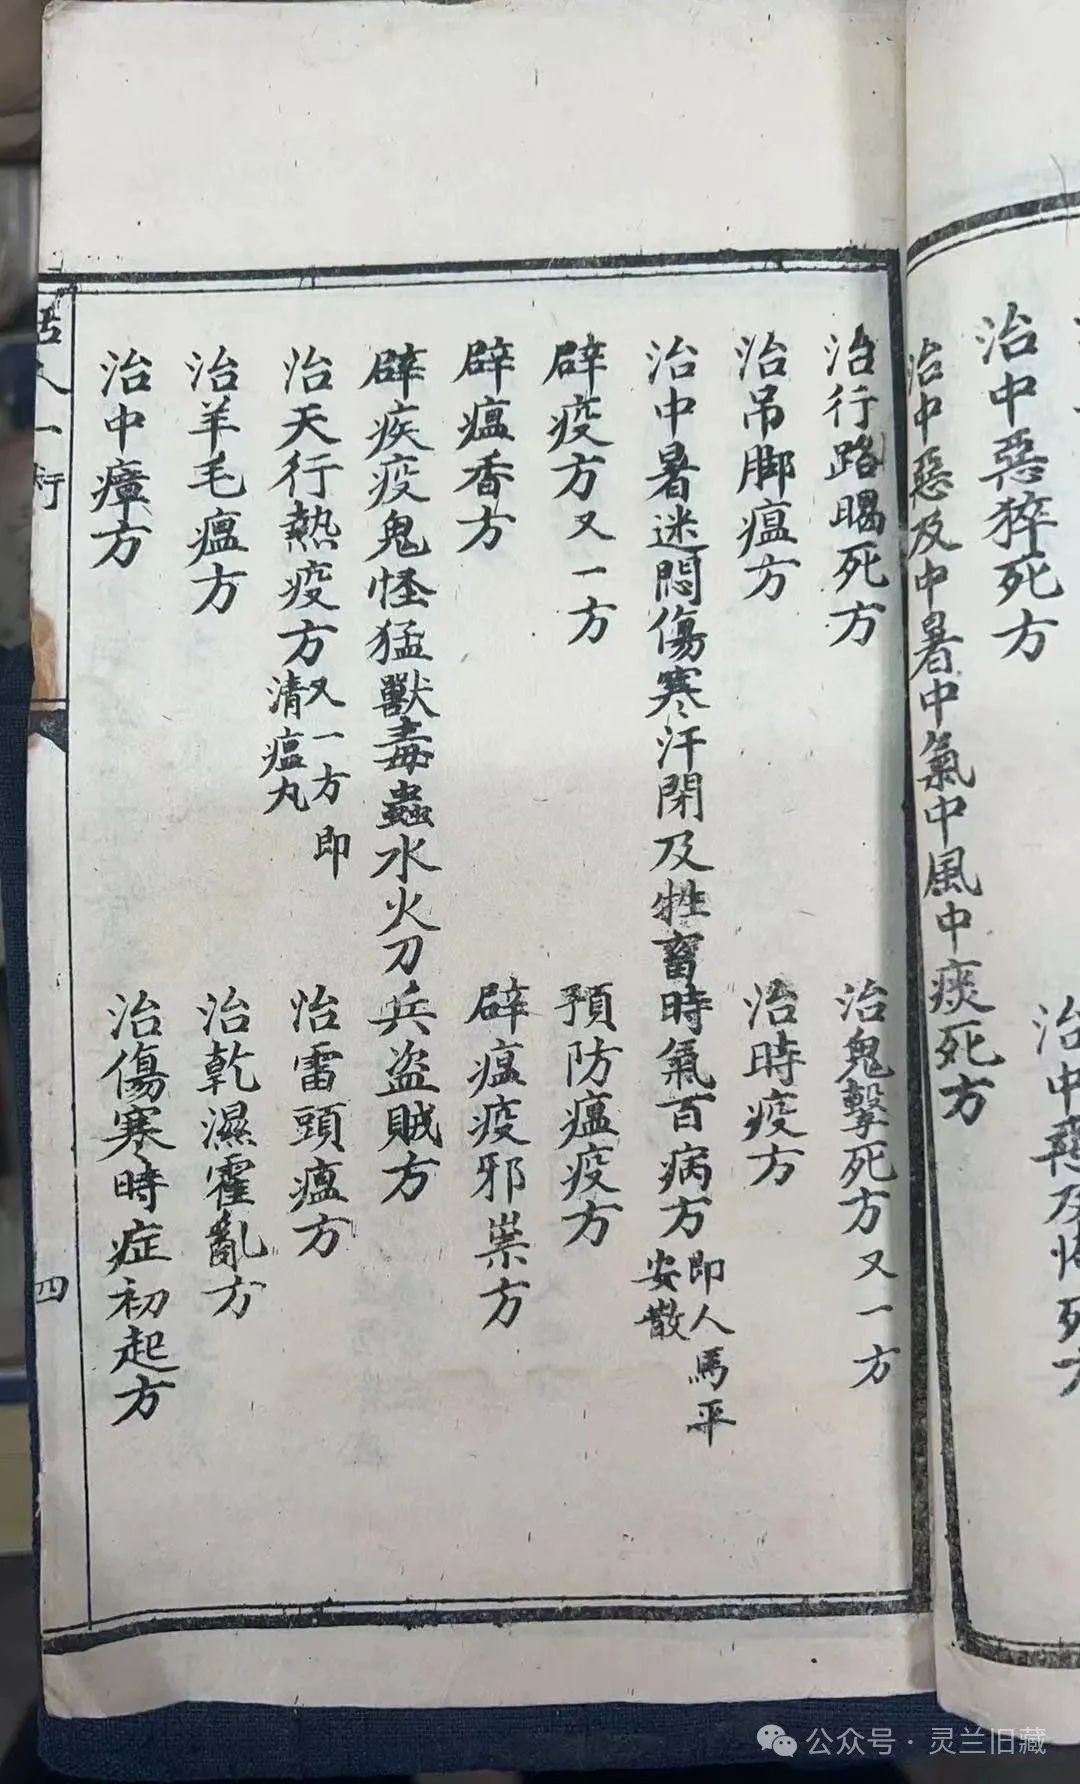 治中惡猝死方　治中惡及怖死方
治中惡及中暑中氣中風中痰死方
治行路暍死方　治鬼擊死方又一方
治吊脚瘟方　治時疫方
治中暑迷悶傷寒汗閉及牲畜時氣百病方即人馬平安散
辟疫方又一方　預防瘟疫方
辟瘟香方　辟瘟疫邪祟方
辟疾疫鬼怪猛獸毒蟲水火刀兵盜賊方
治天行熱疫方又一方即清瘟丸　治雷頭瘟方
治羊毛瘟方　治乾濕霍亂方
治中瘴方　治傷寒時症初起方
活人一術　四
公众号·灵兰旧藏